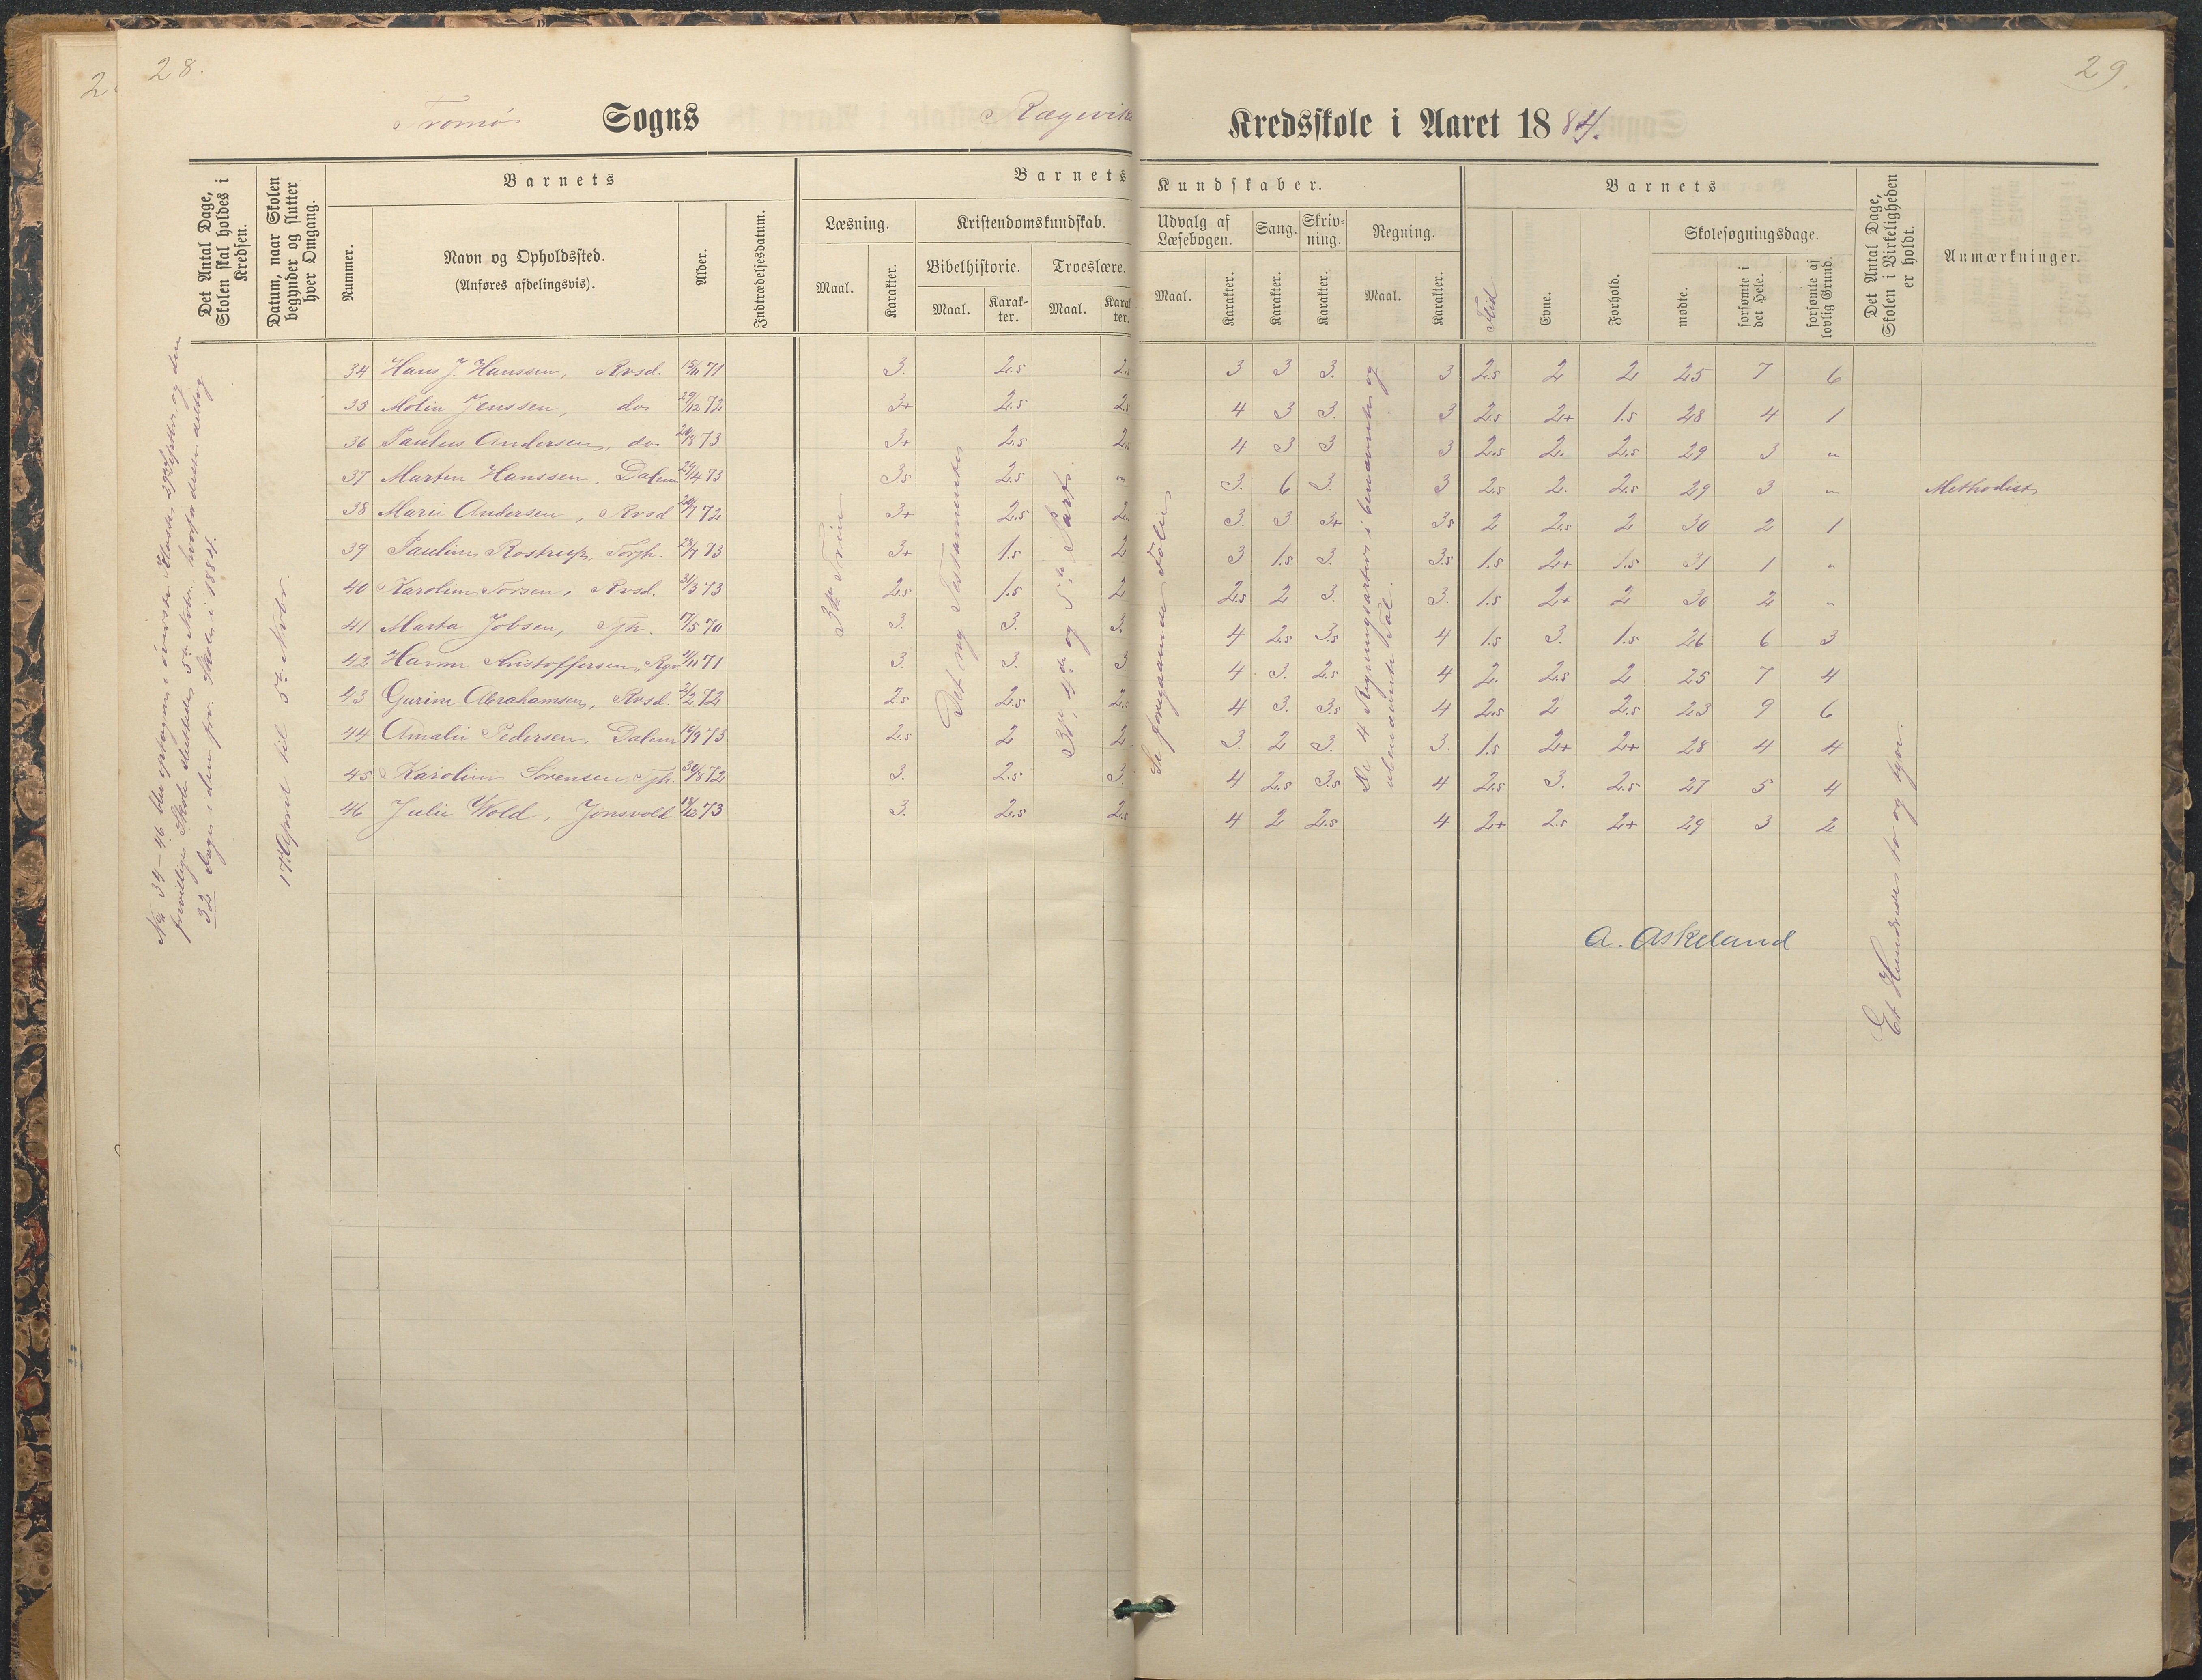 28.
29.
Tromø Sogns Rægevik Kredsskole i Aaret 1884.
Det Antal Dage, Skolen skal holdes i Kredsen.
Datum, naar Skolen begynder og slutter hver Omgang.
Barnets
Nummer.
Navn og Opholdssted.
(Anføres afdelingsvis).
Alder.
Indtrædelsesdatum.
Barnets Kundskaber.
Læsning.
Maal.
Karakter.
Kristendomskundskab.
Bibelhistorie.
Maal.
Karakter.
Troeslære.
Maal.
Karakter.
Udvalg af Læsebogen.
Maal.
Karakter.
Sang.
Karakter.
Skrivning.
Karakter.
Regning.
Maal.
Karakter.
Barnets
Flid
Evne.
Forhold.
Skolesøgningsdage.
mødte.
forsømte i det Hele.
forsømte af lovlig Grund.
Det Antal Dage, Skolen i Virkeligheden er holdt.
Anmærkninger.
34 Hans J. Hanssen, Rvsd. 15/11 71 3. 2.5 2.5 3 3 3. 3 2.5 2 2 25 7 6
35 Molin Jenssen, do 29/12 72 3+ 2.5 2.5 4 3 3. 3 2.5 2+ 1.5 28 4 1
36 Paulus Andersen, do 20/8 73 3+ 2.5 2.5 4 3 3 3 2.5 2. 2.5 29 3 "
37 Martin Hanssen, Dalem 29/4 73 3.5 2.5 " 3. 6 3. 3 2.5 2. 2.5 29 3 " Methodist
38 Maren Andersen, Rvsd 20/7 72 3+ 2.5 2. 3. 3. 3+ 3.5 2 2.5 2 30 2 1
39 Pauline Rostrup, Torjh. 28/7 73 3+ 1.5 2 3 1.5 3. 3.5 1.5 2+ 1.5 31 1 "
40 Karoline Torsen, Rvsd. 31/3 73 2.5 1.5 2 2.5 2 3. 3. 1.5 2+ 2 30 2 "
41 Marta Jobsen, Tjh. 17/5 70 3. 3. 3. 4 2.5 3.5 4 1.5 3. 1.5 26 6 3
42 Hanne Kristoffersen, Rgv 2/11 71 3. 3. 3. 4 3. 2.5 4 2. 2.5 2 25 7 4
43 Gurine Abrahamsen, Rvsd. 2/2 72 2.5 2.5 2.5 4 3. 3.5 4 2.5 2 2.5 23 9 6
44 Amalie Pedersen, Dalem 16/9 73 2.5 2 2 3. 2 3. 3. 1.5 2+ 2+ 28 4 4
45 Karoline Sørensen, Tjh. 30/8 72 3. 2.5 3. 4 2.5 3.5 4 2.5 3. 2.5 27 5 4
46 Julie Wold, Jonsvold 18/12 73 3. 2.5 2.5 4 2 2.5 4 2+ 2.5 2+ 29 3 2
No 34-46 blev optagne i øverste Klasse 29de Septbr. og den
frivillige Skole sluttedes 5te Novbr. hvorfor dissen deltog
32 Dage i den for. Skole i 1884.
17de April til 5te Novbr.
3die Trin
Det ny Testamente
3die, 4de og 5te Part.
Se foregaaende Folie
De 4 Regningsarter i benævnte og
ubenævnte Tal.
Et Hundrede to og tyve.
A. Askeland